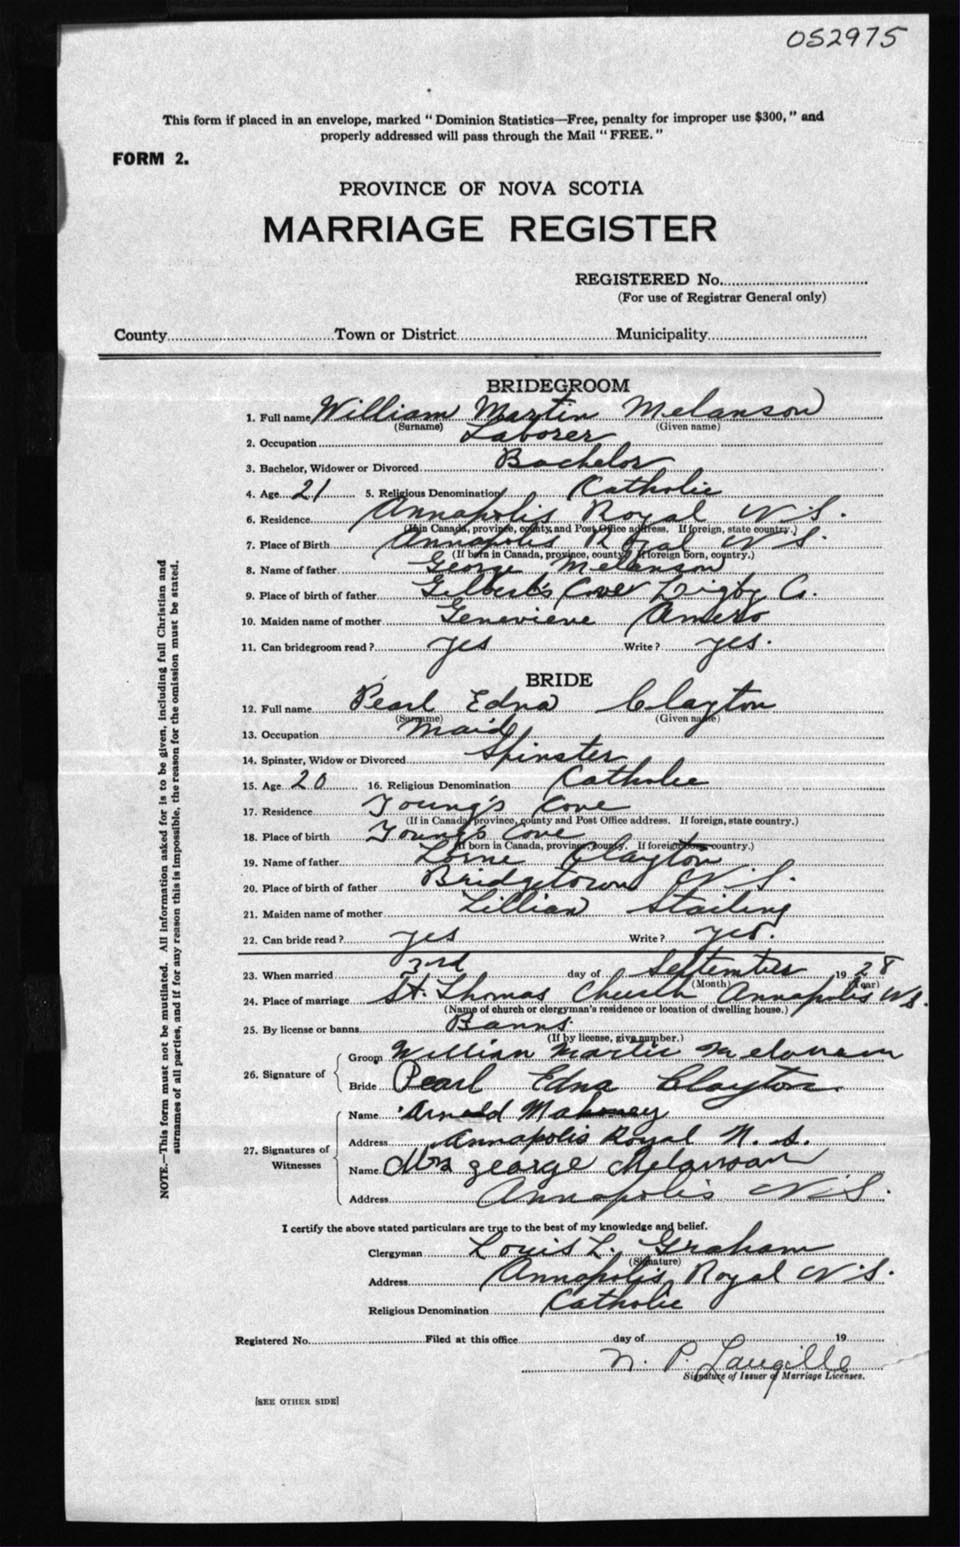 052975
This form if placed in an envelope, marked "Dominion Statistics—Free, penalty for improper use $300," and
properly addressed will pass through the Mail "FREE."
FORM 2.
PROVINCE OF NOVA SCOTIA
MARRIAGE REGISTER
REGISTERED No.
(For use of Registrar General only)
County Town or District Municipality
BRIDEGROOM
1. Full name William Martin Melanson
(Surname) (Given name)
2. Occupation Laborer
3. Bachelor, Widower or Divorced Bachelor
4. Age 21 5. Religious Denomination Catholic
6. Residence Annapolis Royal N.S.
(If in Canada, province, county and Post Office address. If foreign, state country.)
7. Place of Birth Annapolis Royal N.S.
(If born in Canada, province, county. If foreign born, country.)
8. Name of father George Melanson
9. Place of birth of father Gilbert's Cove Digby Co.
10. Maiden name of mother Genevieve Amero
11. Can bridegroom read? yes Write? yes.
BRIDE
12. Full name Pearl Edna Clayton
(Surname) (Given name)
13. Occupation Maid
14. Spinster, Widow or Divorced Spinster
15. Age 20 16. Religious Denomination Catholic
17. Residence Young's Cove
(If in Canada, province, county and Post Office address. If foreign, state country.)
18. Place of birth Young's Cove
(If born in Canada, province, county. If foreign born, country.)
19. Name of father Lorne Clayton
20. Place of birth of father Bridgetown N.S.
21. Maiden name of mother Lillian Stailing
22. Can bride read? yes Write? yes.
23. When married 3rd day of September 1928
(Month) (Year)
24. Place of marriage St. Thomas Church Annapolis N.S.
(Name of church or clergyman's residence or location of dwelling house.)
25. By license or banns Banns.
(If by license, give number.)
26. Signature of Groom William Martin Melanson
Bride Pearl Edna Clayton
27. Signatures of Witnesses Name Arnold Mahoney
Address Annapolis Royal N. S.
Name Mrs George Melanson
Address Annapolis N.S.
I certify the above stated particulars are true to the best of my knowledge and belief.
Clergyman Louis L. Graham
(Signature)
Address Annapolis Royal N.S.
Religious Denomination Catholic
Registered No. Filed at this office day of 19
N. P. Langille
Signature of Issuer of Marriage Licenses.
[SEE OTHER SIDE]
NOTE.—This form must not be mutilated. All information asked for is to be given, including full Christian and
surnames of all parties, and if for any reason this is impossible, the reason for the omission must be stated.